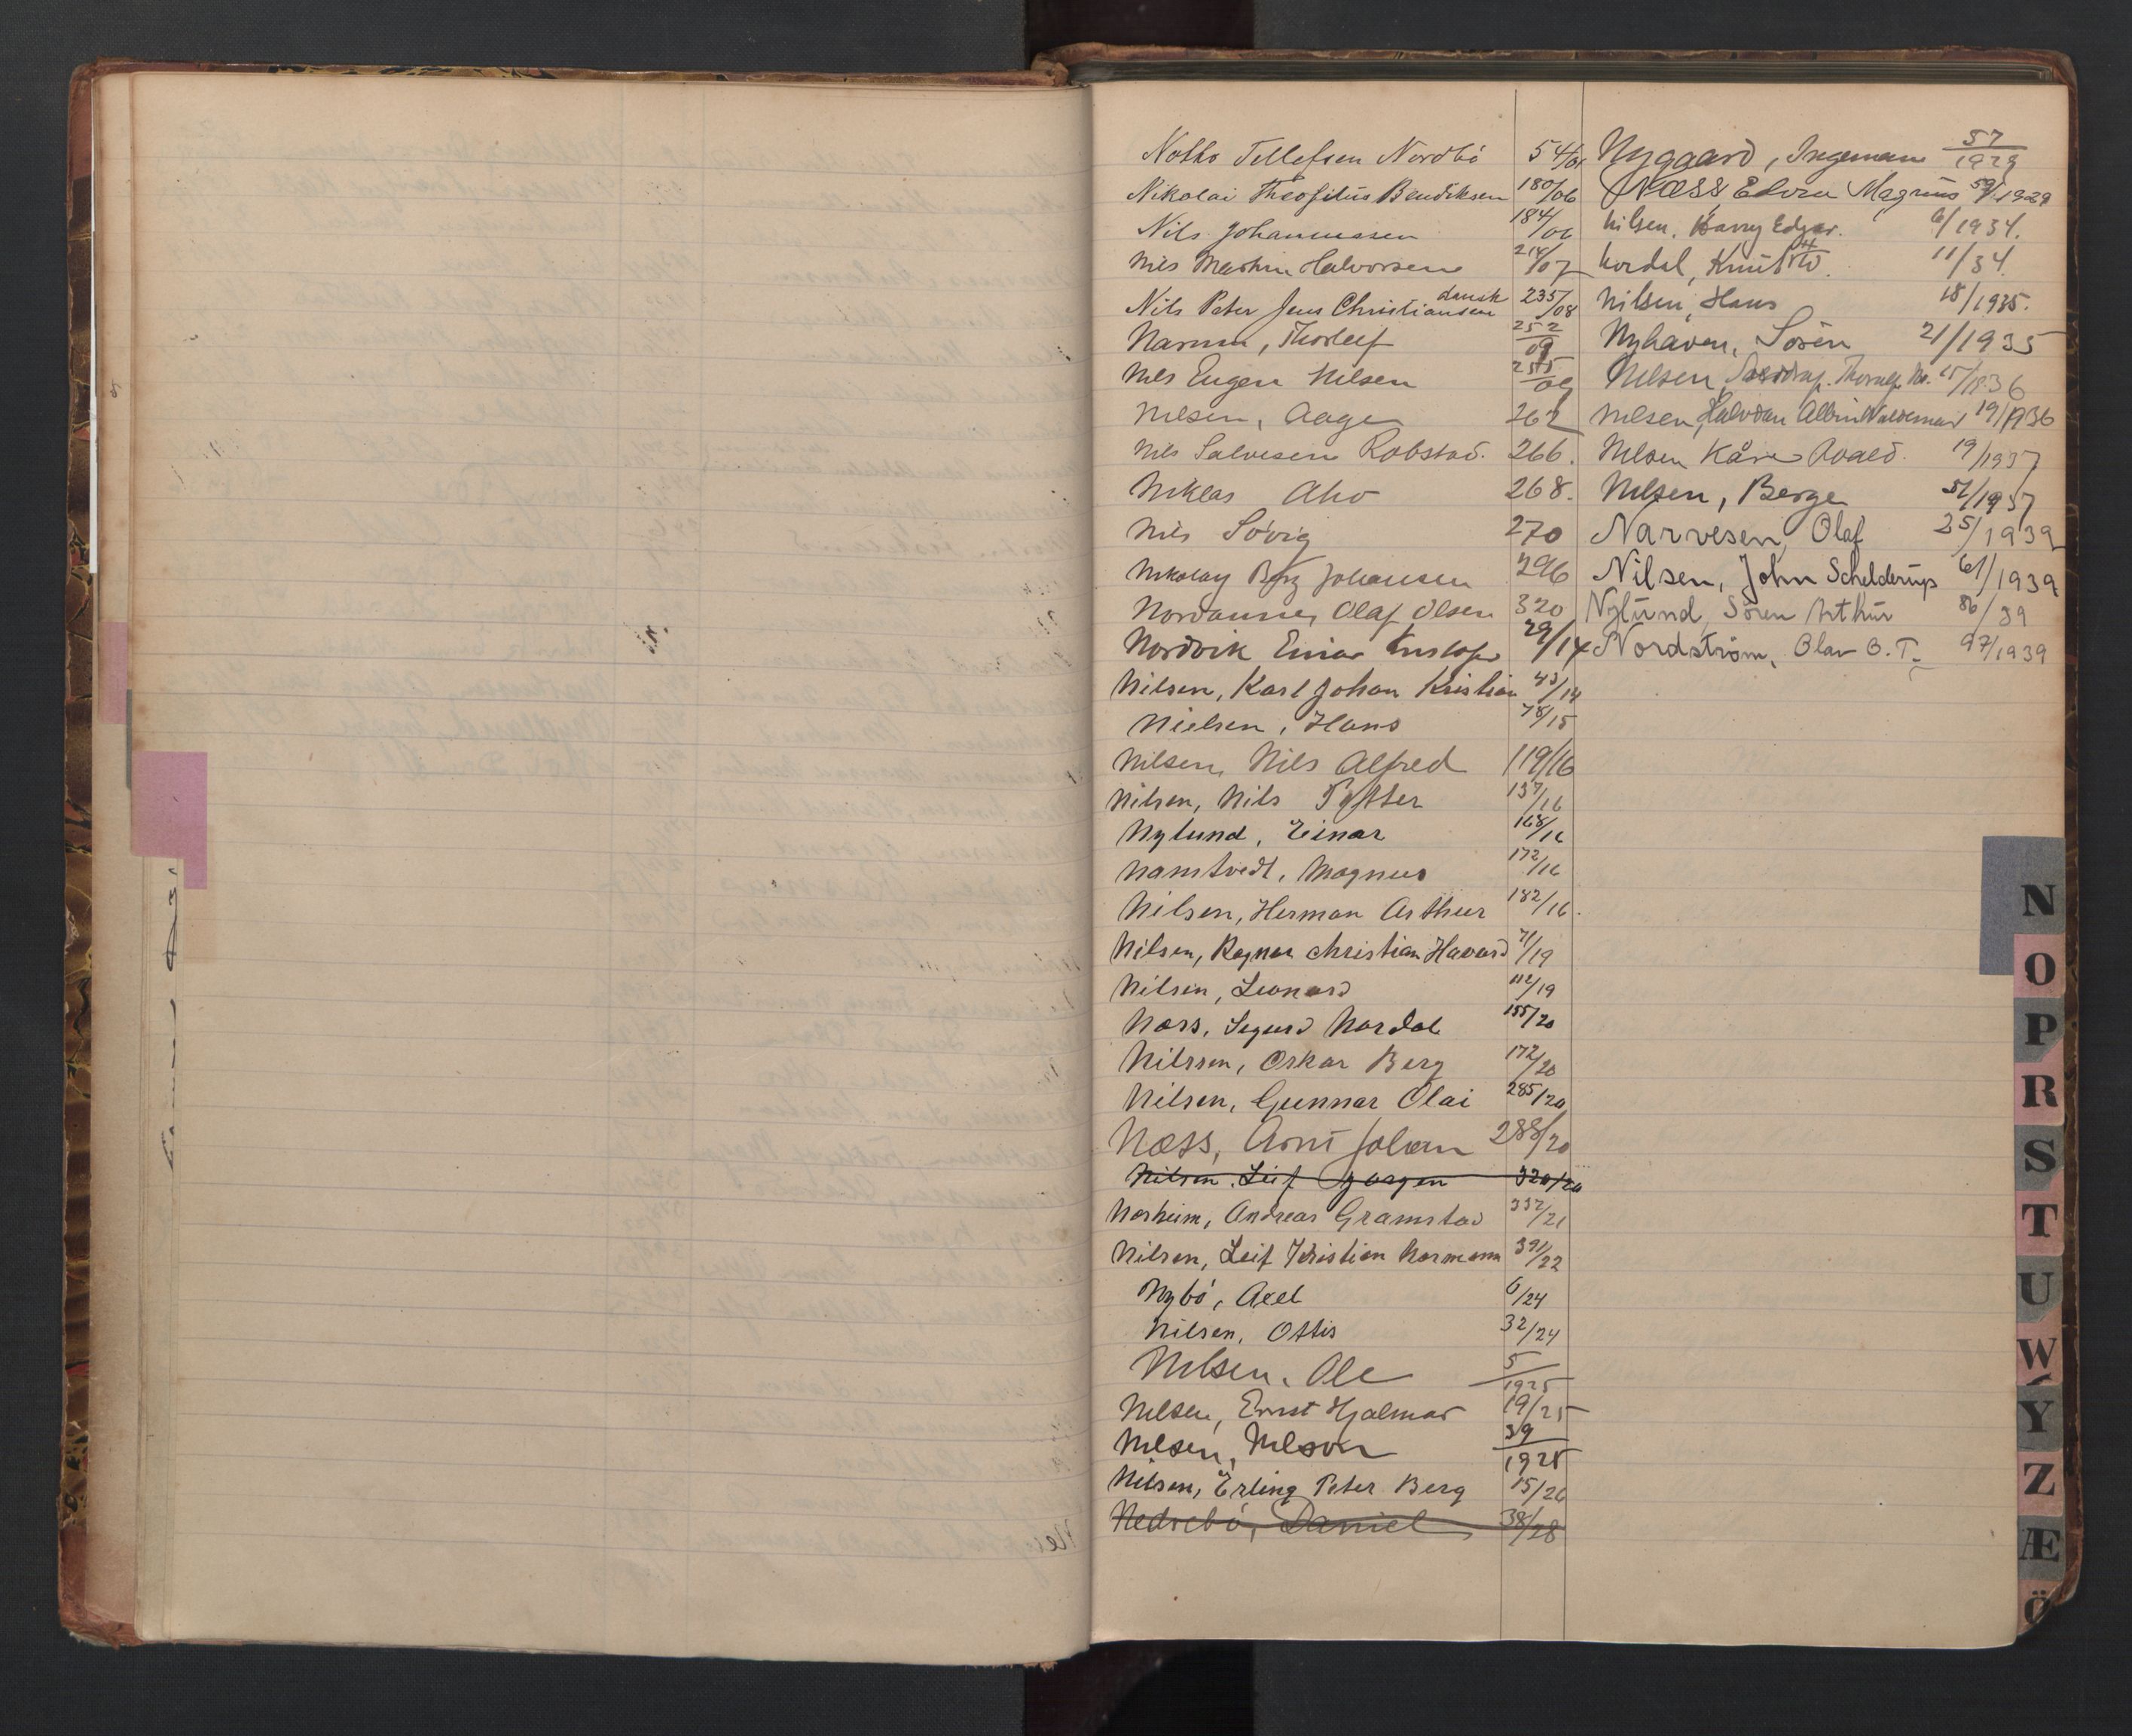 Notto Tellefsen Nordbö 54/01
Nikolai Theofilus Bendiksen 180/06
Nils Johannessen 184/06
Nils Martin Halvorsen 214/07
Nils Peter Jens Christiansen dansk 235/08
Narum, Thorleif 252/09
Nils Eugen Nilsen 255/09
Nilsen, Aage 262
Nils Salvesen Robstad. 266.
Niklas Aho 268.
Nils Sövig 270
Nikolay Berg Johansen 296
Nordannes Olaf Olsen 320
Nordvik Einar 29/14
Nilsen, Karl Johan Kristian 43/14
Nielsen, Hans 78/15
Nilsen, Nils Alfred 119/16
Nilsen, Nils Petter 137/16
Nylund, Einar 168/16
Namtvedt, Magnus 172/16
Nilsen, Herman Arthur 182/16.
Nilsen, Ragnar Christian Havard 71/19
Nilsen, Leonard 112/19
Næss, Sigurd Nordal 155/20
Nilssen, Oskar Berg 172/20
Nilsen, Gunnar Olai 285/20
Næss, Arnt Johan 288/20
Nilsen, Leif Jørgen 320/20
Norheim, Andreas Gramstad 332/21
Nilsen, Leif Kristian Normann 391/22
Nybö, Axel 6/24
Nilsen, Ottis 32/24
Nilsen, Ole 5/1925
Nilsen, Ernst Hjalmar 19/25
Nilsen, Nelson 39/1925
Nilsen, Erling Peter Berg 15/26
Nedrebö, Daniel 38/28
Nygaard, Ingeman 57/1929
Næss, Edvin Magnus 59/1929
Nilsen, Harry Edgar. 6/1934.
Nordal, Knut 11/34.
Nilsen, Hans 18/1935.
Nyhaven, Sören 21/1935
Nilsen, 15/1936
Nilsen, Halvdan Albin Valdemar 19/1936
Nilsen Kåre Roald. 19/1937
Nilsen, Berge 51/1937
Narvesen, Olaf 25/1939
Nilsen, John Schelderup 61/1939
Nylund, Sören Arthur 86/39
Nordström, Olav O. T. 97/1939
N
O
P
R
S
T
U
W
Y
Z
Æ
Ö